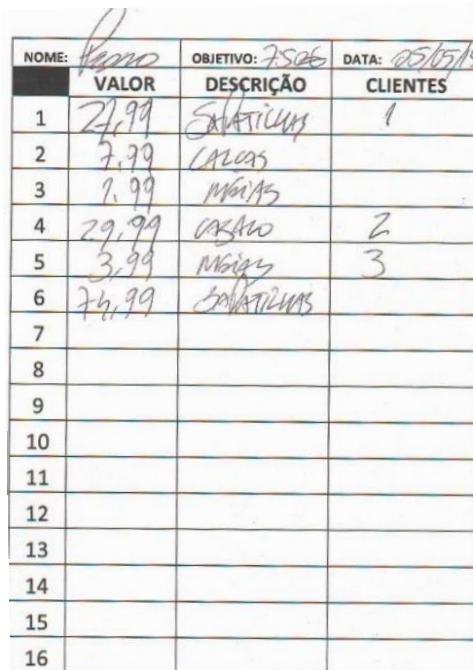 NOME: Pedro OBJETIVO: 750€ DATA: 05/05/1
VALOR DESCRIÇÃO CLIENTES
1 27,99 SAPATILHAS 1
2 7,99 CALÇAS
3 1,99 MEIAS
4 29,99 CASACO 2
5 3,99 MEIAS 3
6 74,99 SAPATILHAS
7
8
9
10
11
12
13
14
15
16